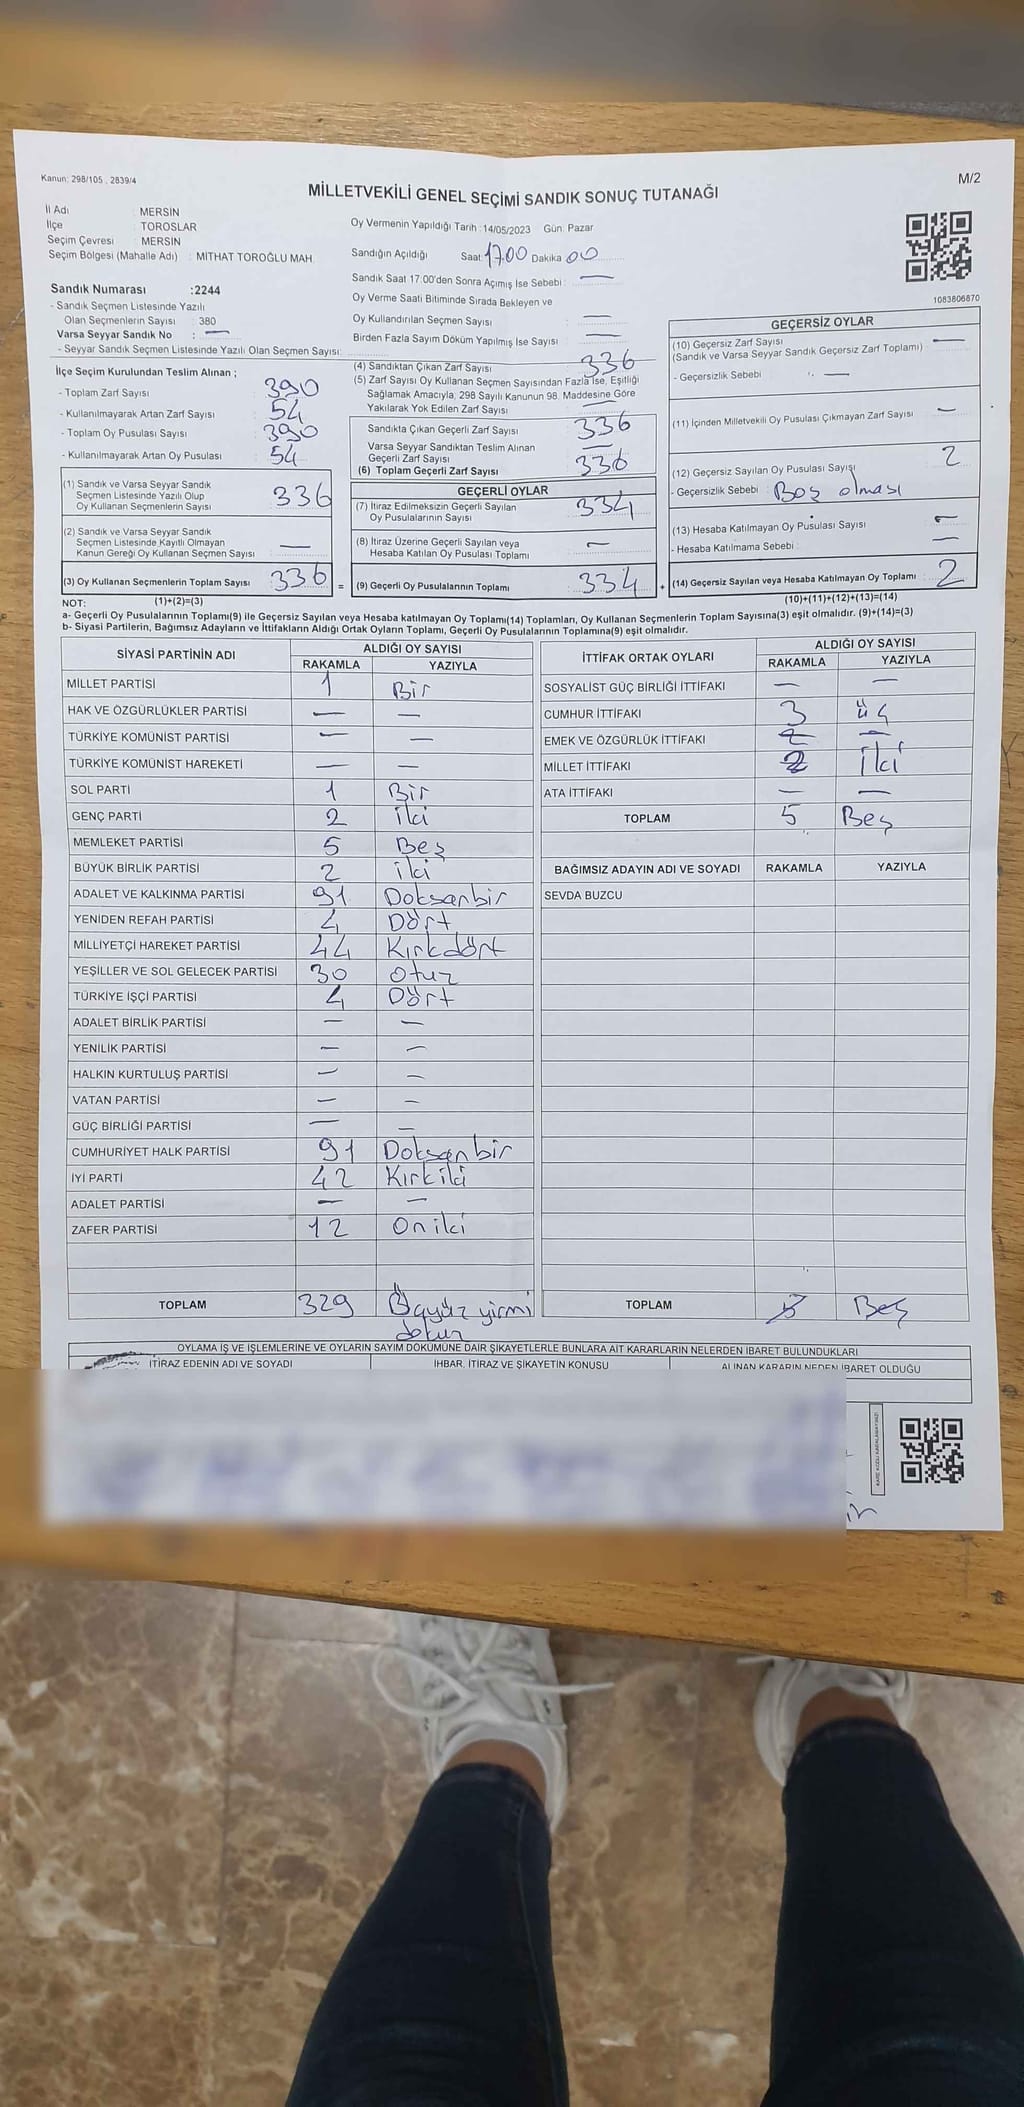 Kanun: 298/105 , 2839/4
M/2
MİLLETVEKİLİ GENEL SEÇİMİ SANDIK SONUÇ TUTANAĞI
İl Adı : MERSİN
İlçe : TOROSLAR
Seçim Çevresi : MERSİN
Seçim Bölgesi (Mahalle Adı) : MİTHAT TOROĞLU MAH.
Oy Vermenin Yapıldığı Tarih : 14/05/2023 Gün: Pazar
Sandığın Açıldığı Saat 17.00 Dakika 00
Sandık Saat 17:00'den Sonra Açımış İse Sebebi : —
Oy Verme Saati Bitiminde Sırada Bekleyen ve
Oy Kullandırılan Seçmen Sayısı : —
Birden Fazla Sayım Döküm Yapılmış İse Sayısı : —
1083806870
Sandık Numarası :2244
- Sandık Seçmen Listesinde Yazılı
Olan Seçmenlerin Sayısı : 380
Varsa Seyyar Sandık No : —
- Seyyar Sandık Seçmen Listesinde Yazılı Olan Seçmen Sayısı:
İlçe Seçim Kurulundan Teslim Alınan ;
- Toplam Zarf Sayısı 390
- Kullanılmayarak Artan Zarf Sayısı 54
- Toplam Oy Pusulası Sayısı 390
- Kullanılmayarak Artan Oy Pusulası 54
(1) Sandık ve Varsa Seyyar Sandık
Seçmen Listesinde Yazılı Olup
Oy Kullanan Seçmenlerin Sayısı 336
(2) Sandık ve Varsa Seyyar Sandık
Seçmen Listesinde Kayıtlı Olmayan
Kanun Gereği Oy Kullanan Seçmen Sayısı —
(3) Oy Kullanan Seçmenlerin Toplam Sayısı 336 =
(1)+(2)=(3)
(4) Sandıktan Çıkan Zarf Sayısı 336
(5) Zarf Sayısı Oy Kullanan Seçmen Sayısından Fazla İse, Eşitliği
Sağlamak Amacıyla, 298 Sayılı Kanunun 98. Maddesine Göre
Yakılarak Yok Edilen Zarf Sayısı —
Sandıkta Çıkan Geçerli Zarf Sayısı 336
Varsa Seyyar Sandıktan Teslim Alınan
Geçerli Zarf Sayısı —
(6) Toplam Geçerli Zarf Sayısı 336
GEÇERLİ OYLAR
(7) İtiraz Edilmeksizin Geçerli Sayılan
Oy Pusulalarının Sayısı 334
(8) İtiraz Üzerine Geçerli Sayılan veya
Hesaba Katılan Oy Pusulası Toplamı —
(9) Geçerli Oy Pusulalarının Toplamı 334 +
GEÇERSİZ OYLAR
(10) Geçersiz Zarf Sayısı —
(Sandık ve Varsa Seyyar Sandık Geçersiz Zarf Toplamı)
- Geçersizlik Sebebi : —
(11) İçinden Milletvekili Oy Pusulası Çıkmayan Zarf Sayısı —
(12) Geçersiz Sayılan Oy Pusulası Sayısı 2
- Geçersizlik Sebebi : Boş olması
(13) Hesaba Katılmayan Oy Pusulası Sayısı —
- Hesaba Katılmama Sebebi : —
(14) Geçersiz Sayılan veya Hesaba Katılmayan Oy Toplamı 2
(10)+(11)+(12)+(13)=(14)
NOT:
a- Geçerli Oy Pusulalarının Toplamı(9) ile Geçersiz Sayılan veya Hesaba katılmayan Oy Toplamı(14) Toplamları, Oy Kullanan Seçmenlerin Toplam Sayısına(3) eşit olmalıdır. (9)+(14)=(3)
b- Siyasi Partilerin, Bağımsız Adayların ve İttifakların Aldığı Ortak Oyların Toplamı, Geçerli Oy Pusulalarının Toplamına(9) eşit olmalıdır.
SİYASİ PARTİNİN ADI ALDIĞI OY SAYISI
RAKAMLA YAZIYLA
MİLLET PARTİSİ 1 Bir
HAK VE ÖZGÜRLÜKLER PARTİSİ — —
TÜRKİYE KOMÜNİST PARTİSİ — —
TÜRKİYE KOMÜNİST HAREKETİ — —
SOL PARTİ 1 Bir
GENÇ PARTİ 2 iki
MEMLEKET PARTİSİ 5 Beş
BÜYÜK BİRLİK PARTİSİ 2 iki
ADALET VE KALKINMA PARTİSİ 91 Doksanbir
YENİDEN REFAH PARTİSİ 4 Dört
MİLLİYETÇİ HAREKET PARTİSİ 44 Kırkdört
YEŞİLLER VE SOL GELECEK PARTİSİ 30 Otuz
TÜRKİYE İŞÇİ PARTİSİ 4 Dört
ADALET BİRLİK PARTİSİ — —
YENİLİK PARTİSİ — —
HALKIN KURTULUŞ PARTİSİ — —
VATAN PARTİSİ — —
GÜÇ BİRLİĞİ PARTİSİ — —
CUMHURİYET HALK PARTİSİ 91 Doksanbir
İYİ PARTİ 42 Kırkiki
ADALET PARTİSİ — —
ZAFER PARTİSİ 12 Oniki
TOPLAM 329 Üçyüz yirmi
dokuz
İTTİFAK ORTAK OYLARI ALDIĞI OY SAYISI
RAKAMLA YAZIYLA
SOSYALİST GÜÇ BİRLİĞİ İTTİFAKI — —
CUMHUR İTTİFAKI 3 üç
EMEK VE ÖZGÜRLÜK İTTİFAKI —
MİLLET İTTİFAKI 2 iki
ATA İTTİFAKI — —
TOPLAM 5 Beş
BAĞIMSIZ ADAYIN ADI VE SOYADI RAKAMLA YAZIYLA
SEVDA BUZCU
TOPLAM 5 Beş
OYLAMA İŞ VE İŞLEMLERİNE VE OYLARIN SAYIM DÖKÜMÜNE DAİR ŞİKAYETLERLE BUNLARA AİT KARARLARIN NELERDEN İBARET BULUNDUKLARI
İTİRAZ EDENİN ADI VE SOYADI İHBAR, İTİRAZ VE ŞİKAYETİN KONUSU ALINAN KARARIN NEDEN İBARET OLDUĞU